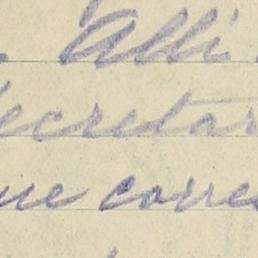 . Alli.
Secretar
ne corre